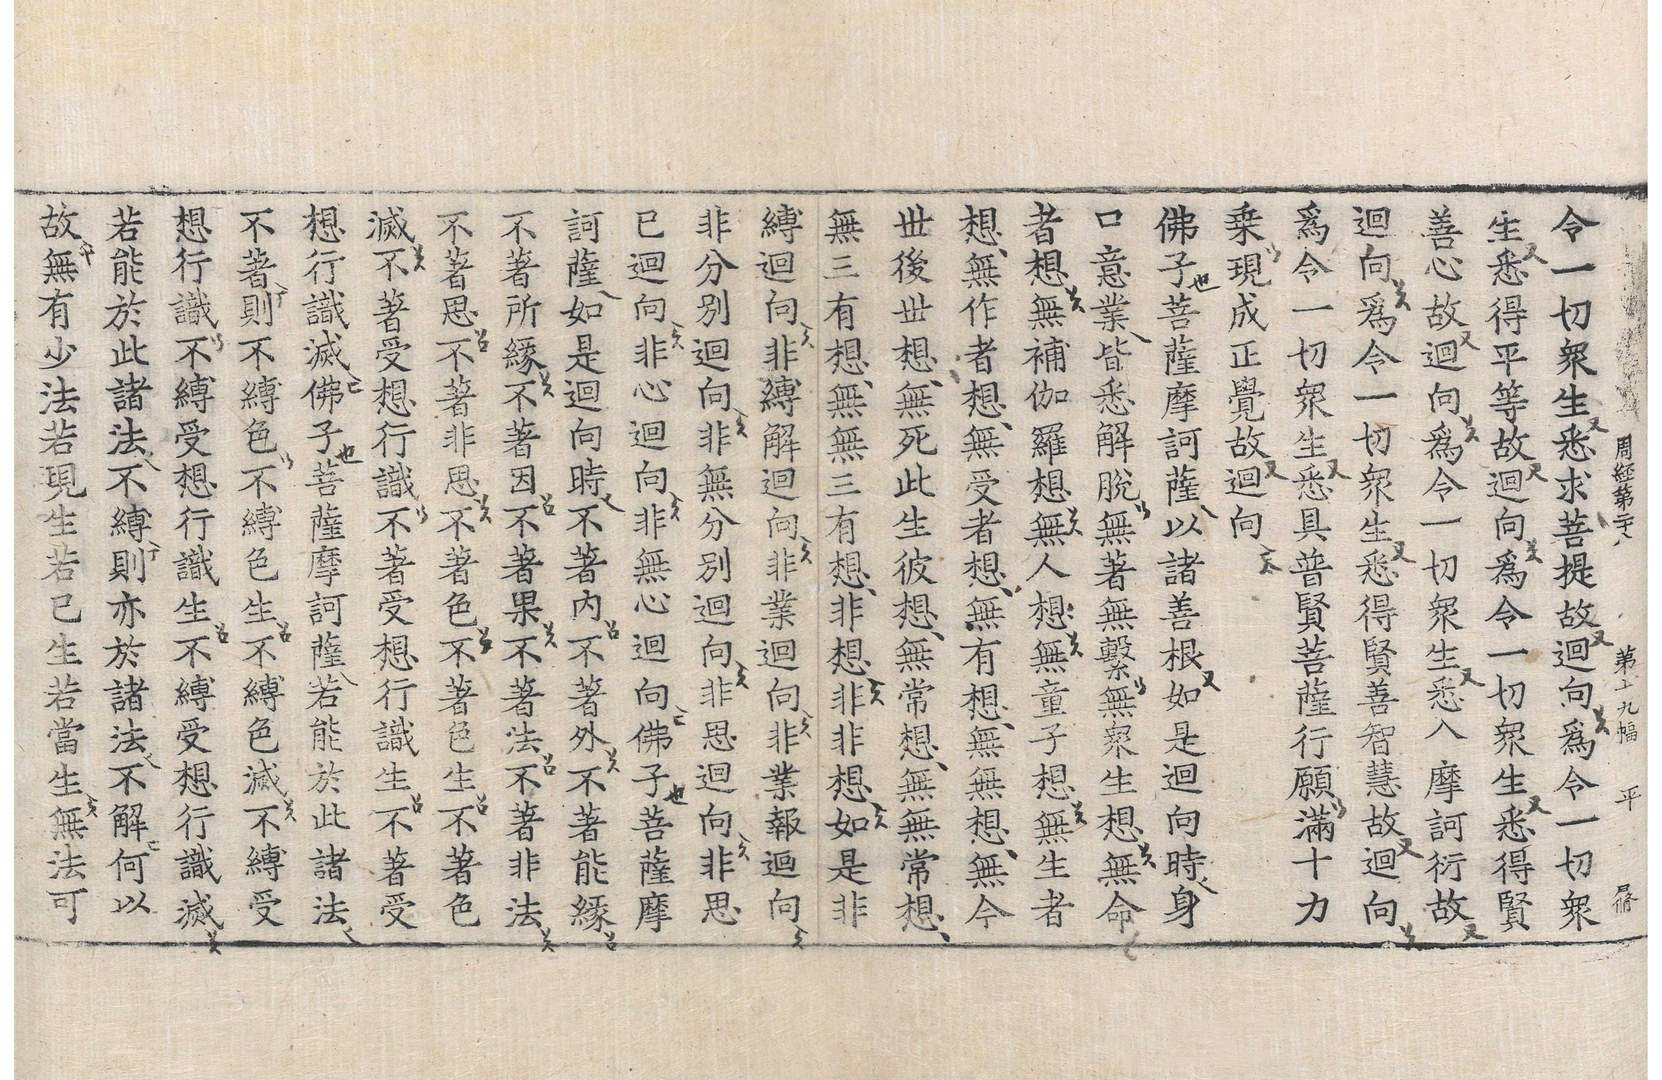 周經第二十八 第十九幅 平
令一切衆生悉求菩提故迴向爲令一切衆
生悉得平等故迴向爲令一切衆生悉得賢
善心故迴向爲令一切衆生悉入摩訶衍故
迴向爲令一切衆生悉得賢善智慧故迴向
爲令一切衆生悉具普賢菩薩行願滿十力
乗現成正覺故迴向
佛子菩薩摩訶薩以諸善根如是迴向時身
口意業皆悉解脫無著無繫無衆生想無命
者想無補伽羅想無人想無童子想無生者
想無作者想無受者想無有想無無想無今
世後世想無死此生彼想無常想無無常想
無三有想無無三有想非想非非想如是非
縛迴向非縛解迴向非業迴向非業報迴向
非分別迴向非無分別迴向非思迴向非思
已迴向非心迴向非無心迴向佛子菩薩摩
訶薩如是迴向時不著內不著外不著能緣
不著所緣不著因不著果不著法不著非法
不著思不著非思不著色不著色生不著色
滅不著受想行識不著受想行識生不著受
想行識滅佛子菩薩摩訶薩若能於此諸法
不著則不縛色不縛色生不縛色滅不縛受
想行識不縛受想行識生不縛受想行識滅
若能於此諸法不縛則亦於諸法不解何以
故無有少法若現生若已生若當生無法可